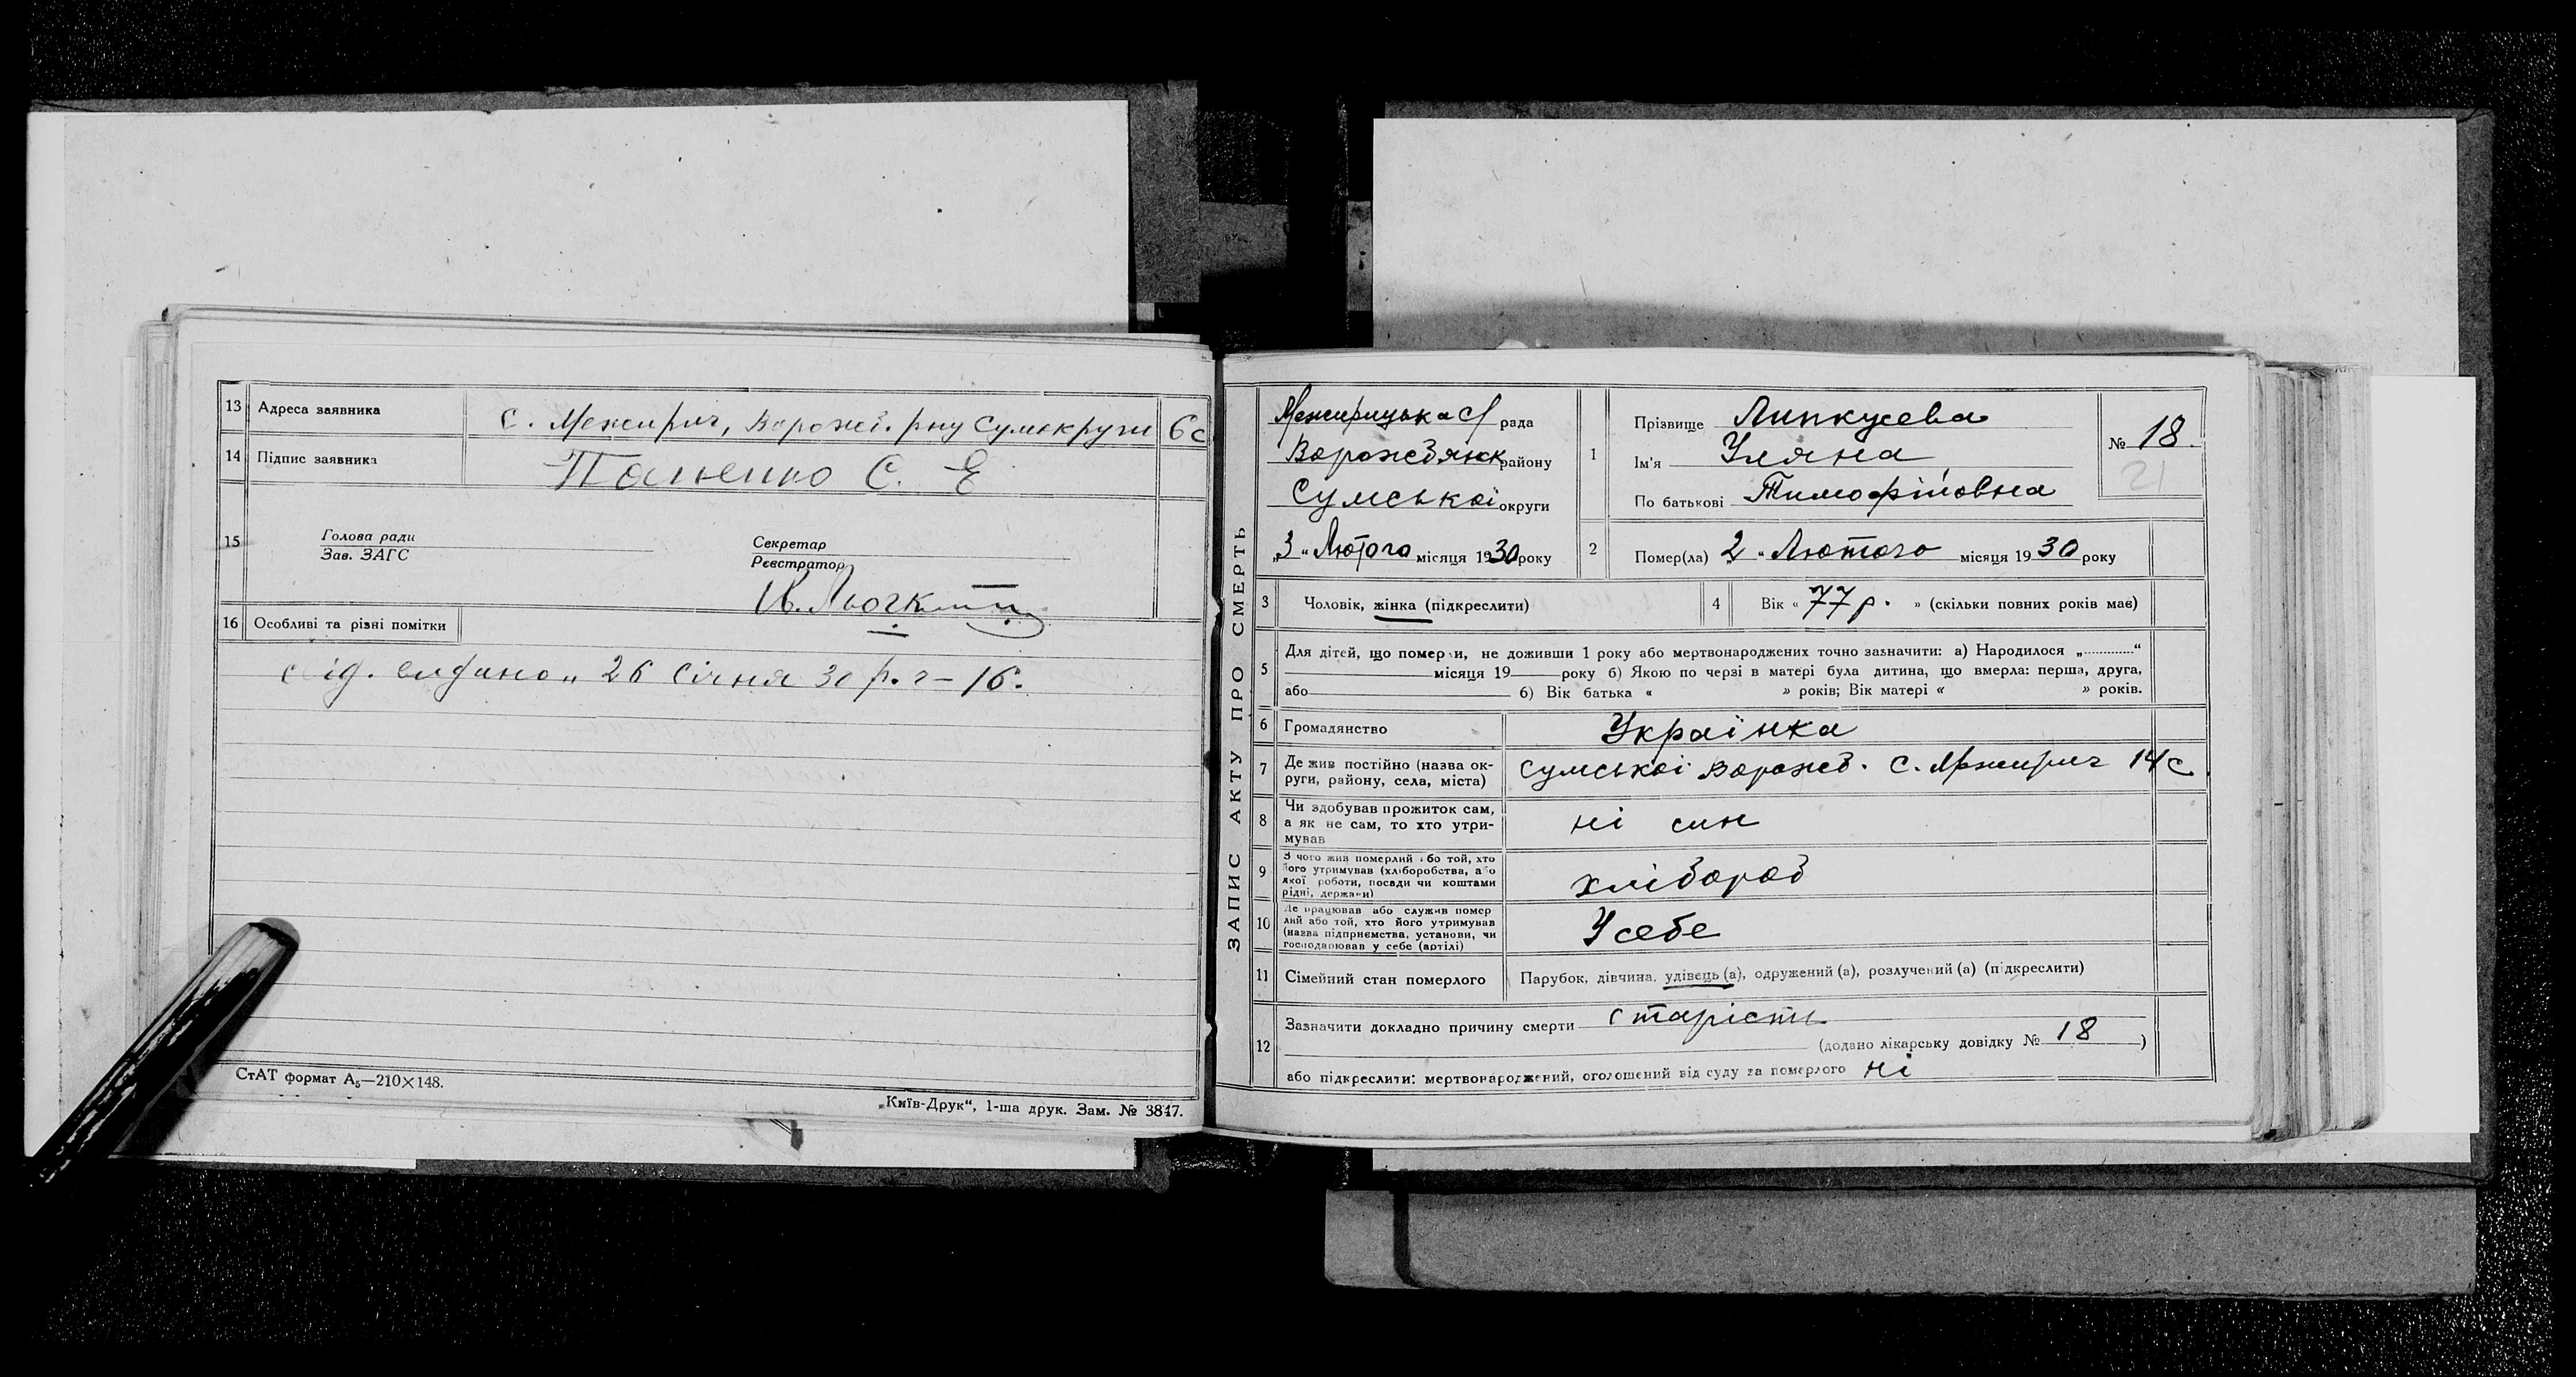 13 Адреса заявника с. Межирич, Ворожб. р-ну Сумокруги 6 с
14 Підпис заявника Паненко С. Е
15 Голова ради
Зав. ЗАГС
Секретар
Реєстратор
16 Особливі та різні помітки
свід. видано „ 26 січня 30 р. г – 16.
СтАТ формат А₅—210×148.
„Київ-Друк“, 1-ша друк. Зам. № 3847.
ЗАПИС АКТУ ПРО СМЕРТЬ
Межирицька С/ рада
Ворожбянськ району
Сумської округи
„ 3 “ Лютого місяця 1930 року
1 Прізвище Липкусева
Ім'я Уляна
По батькові Тимофіївна
№ 18
21
2 Помер(ла) „ 2 “ Лютого місяця 19 30 року
3 Чоловік, жінка (підкреслити)
4 Вік « 77 р. » (скільки повних років має)
5 Для дітей, що померли, не доживши 1 року або мертвонароджених точно зазначити: а) Народилося „............“
місяця 19 року б) Якою по черзі в матері була дитина, що вмерла: перша, друга,
або б) Вік батька « » років; Вік матері « » років.
6 Громадянство Українка
7 Де жив постійно (назва ок-
руги, району, села, міста) Сумської Ворожб. с. Межирич 14 с
8 Чи здобував прожиток сам,
а як не сам, то хто утри-
мував ні син
9 З чого жив померлий або той, хто
його утримував (хліборобства, або
якої роботи, посади чи коштами
рідні, держави) хлібороб
10 Де працював або служив помер
лий або той, хто його утримував
(назва підприємства, установи, чи
господарював у себе (артілі) У себе
11 Сімейний стан померлого Парубок, дівчина, удівець (а), одружений (а), розлучений (а) (підкреслити)
12 Зазначити докладно причину смерти старісти
(додано лікарську довідку № 18 )
або підкреслити: мертвонароджений, оголошений від суду за померлого ні